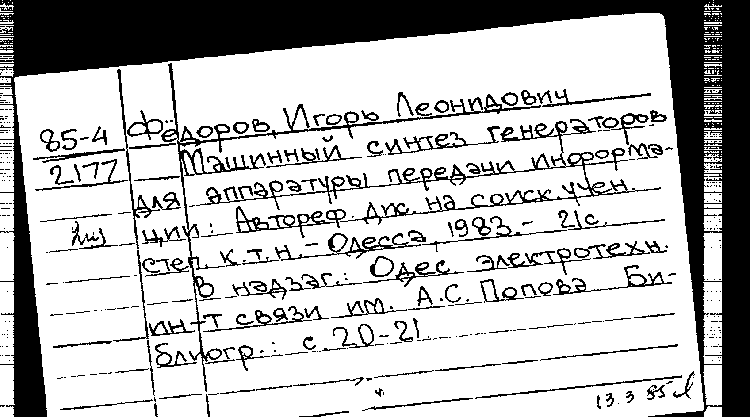 85-4 Фёдоров, Игорь Леонидович
2177 Машинный синтез генераторов
для аппаратуры передачи информа-
ции: Автореф. дис. на соиск. учен.
степ. к.т.н. - Одесса, 1983. - 21с.
В надзаг.: Одес. электротехн.
ин-т связи им. А.С. Попова Би-
блиогр.: с. 20-21
13.3 85